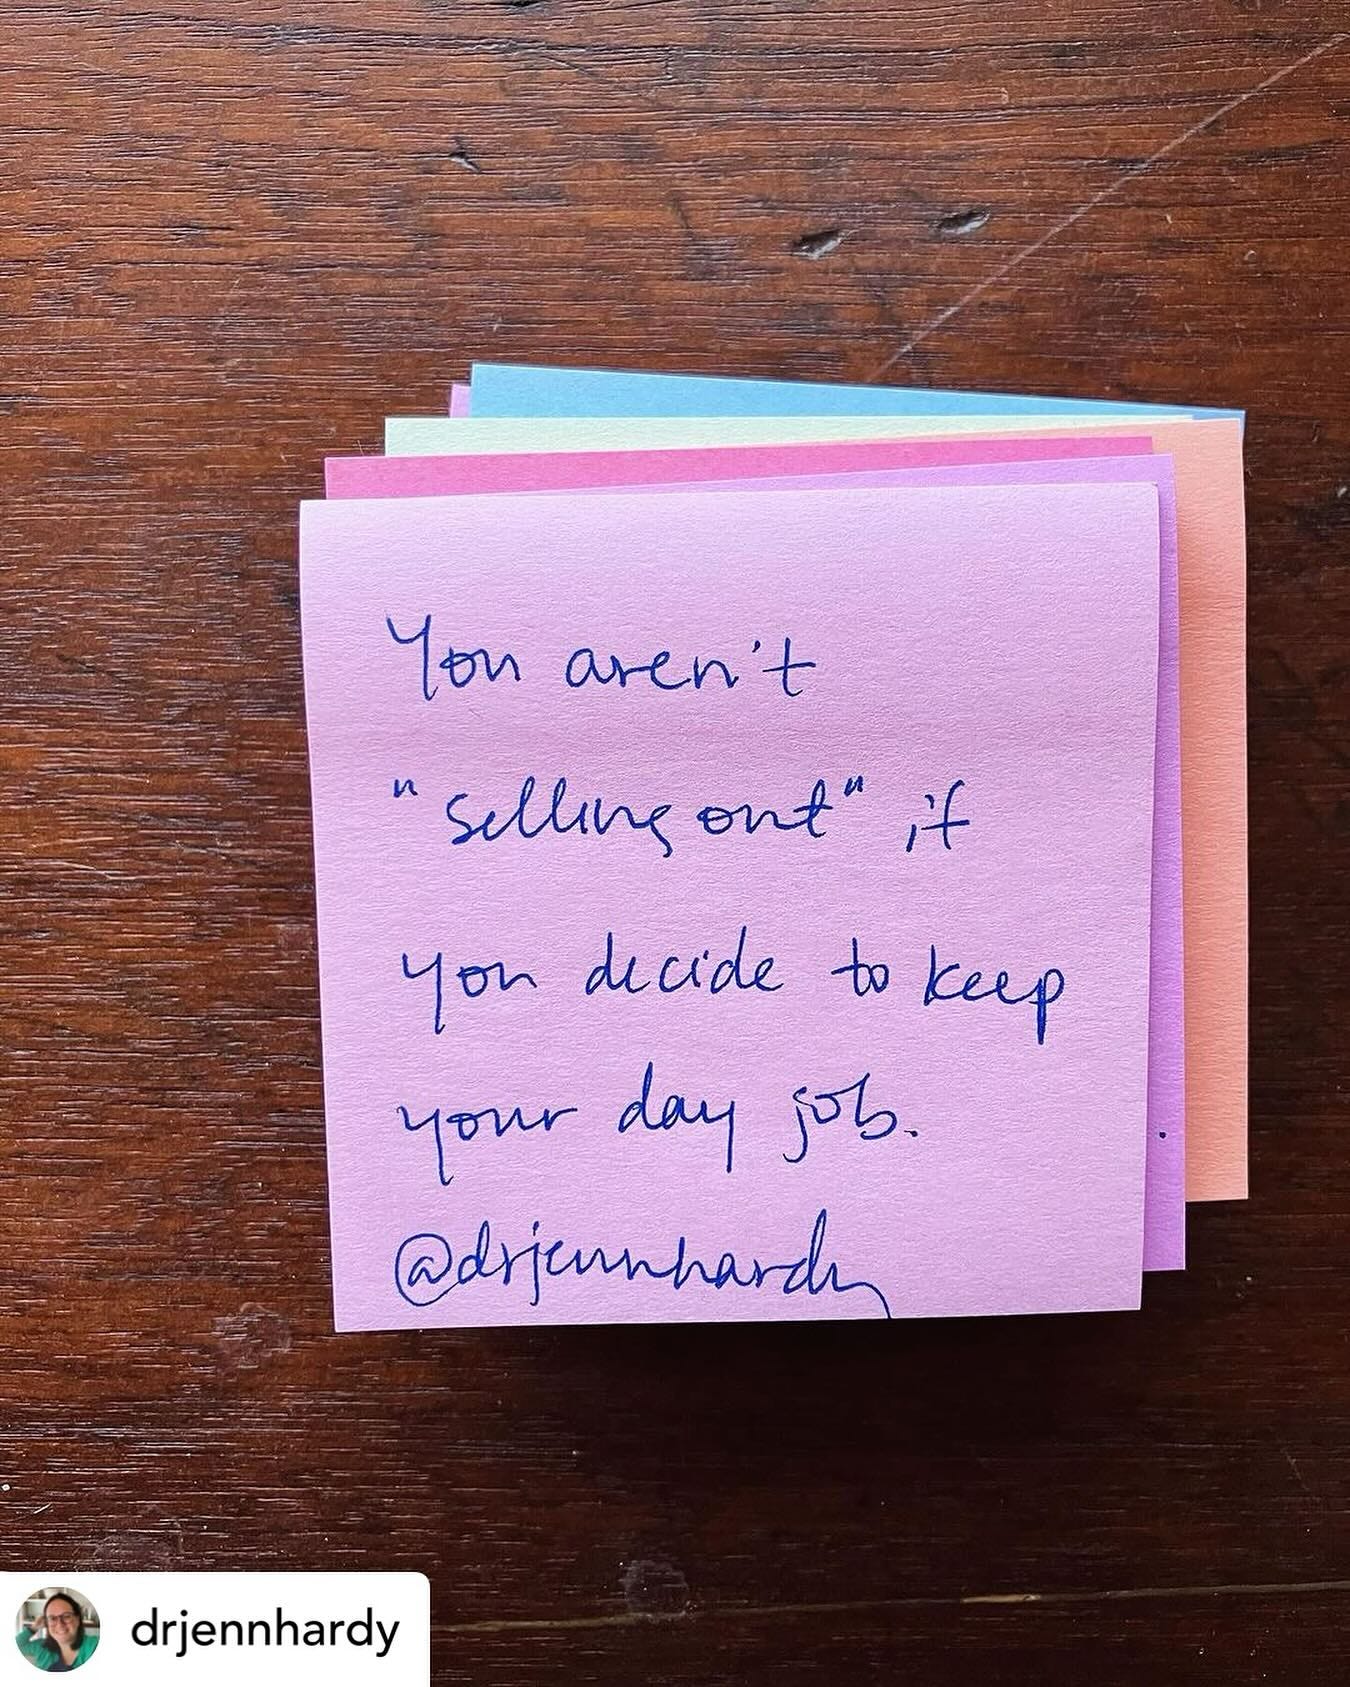 You aren't
"selling out" if
you decide to keep
your day job.
@drjennhardy
drjennhardy